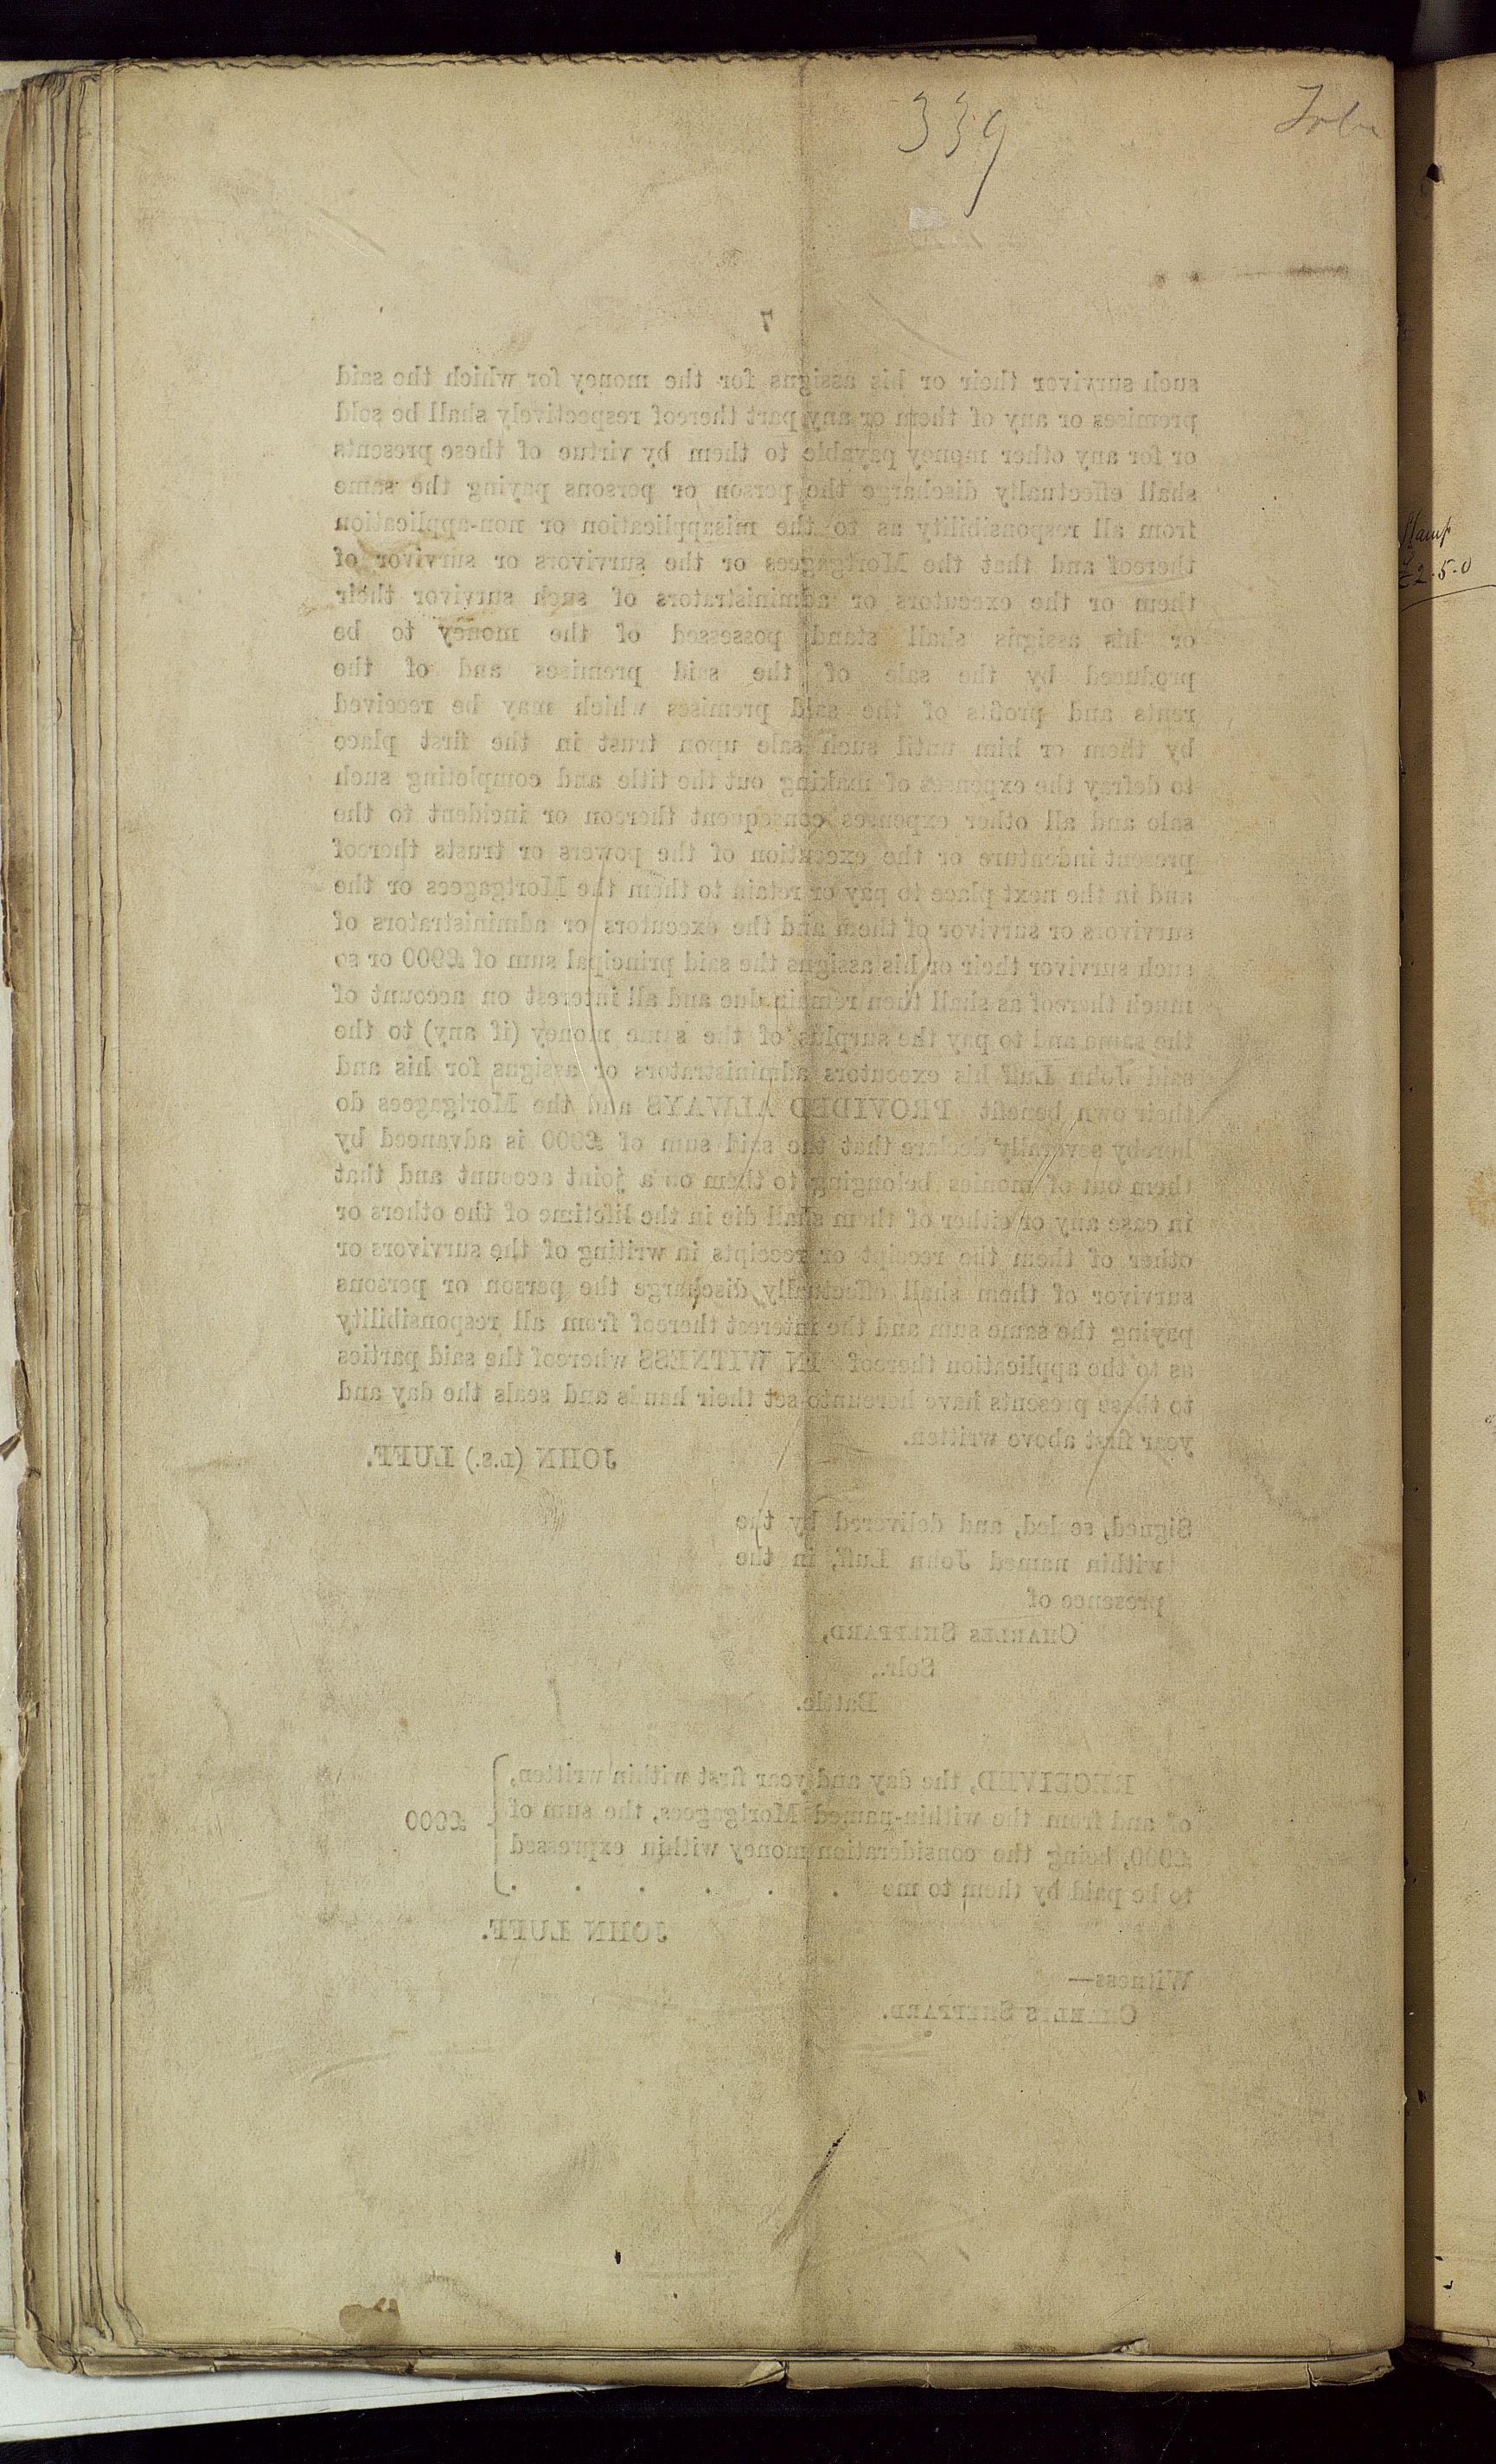 339
7
such survivor their or his assigns for the money for which the said
premises or any of them or any part thereof respectively shall be sold
or for any other money payable to them by virtue of these presents
shall effectually discharge the person or persons paying the same
from all responsibility as to the misapplication or non-application
thereof and that the Mortgagees or the survivors or survivor of
them or the executors or administrators of such survivor their
or his assigns shall stand possessed of the money to be
produced by the sale of the said premises and of the
rents and profits of the said premises which may be received
by them or him until such sale upon trust in the first place
to defray the expenses of making out the title and completing such
sale and all other expenses consequent thereon or incident to the
present indenture or the execution of the powers or trusts thereof
and in the next place to pay or retain to them the Mortgagees or the
survivors or survivor of them and the executors or administrators of
such survivor their or his assigns the said principal sum of £900 or so
much thereof as shall then remain due and all interest on account of
the same and to pay the surplus of the same money (if any) to the
said John Luff his executors administrators or assigns for his and
their own benefit PROVIDED ALWAYS and the Mortgagees do
hereby severally declare that the said sum of £900 is advanced by
them out of monies belonging to them on a joint account and that
in case any or either of them shall die in the lifetime of the others or
other of them the receipt or receipts in writing of the survivors or
survivor of them shall effectually discharge the person or persons
paying the same sum and the interest thereof from all responsibility
as to the application thereof IN WITNESS whereof the said parties
to these presents have hereunto set their hands and seals the day and
year first above written.
JOHN (L.S.) LUFF.
Signed, sealed, and delivered by the
within named John Luff, in the
presence of
CHARLES SHEPPARD,
Solr.,
Battle.
RECEIVED, the day and year first within written,
of and from the within-named Mortgagees, the sum of
£900, being the consideration money within expressed
to be paid by them to me . . . . . .
£900
JOHN LUFF.
Witness—
CHARLES SHEPPARD.
Stamp
£2.5.0